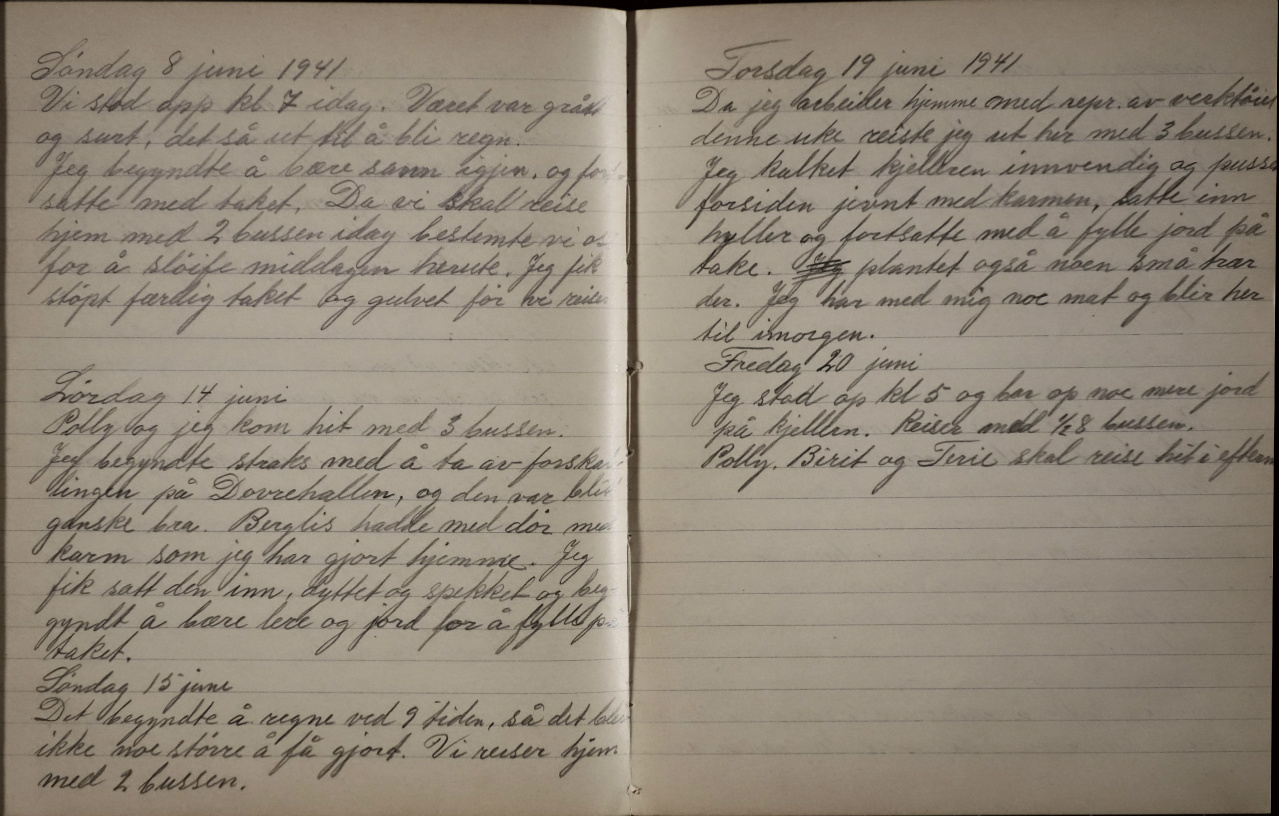 Søndag 8 juni 1941
Vi stod opp kl 7 idag. Været var grått
og surt, det så ut til å bli regn.
Jeg begyndte å bære sann igjen, og fort-
satte med taket. Da vi skal reise
hjem med 2 bussen idag bestemte vi os
for å sløife middagen herute. Jeg fik
støpt færdig taket og gulvet før vi reiser
Lørdag 14 juni
Polly og jeg kom hit med 3 bussen.
Jeg begyndte straks med å ta av forskal-
lingen på Dovrehallen, og den var blit
ganske bra. Berglis hadde med dør med
karm som jeg har gjort hjemme. Jeg
fik satt den inn, dyttet og spekket og beg-
gyndt å bære lere og jord for å fylle på
taket.
Søndag 15 juni
Det begyndte å regne ved 9 tiden, så det blev
ikke noe større å få gjort. Vi reiser hjem
med 2 bussen.
Torsdag 19 juni 1941
Da jeg arbeider hjemme med repr. av verktøiet
denne uke reiste jeg ut her med 3 bussen.
Jeg kalket kjelleren innvendig og pusset
forsiden jevnt med karmen, satte inn
hyller og fortsatte med å fylle jord på
take. plantet også noen små trær
der. Jeg har med mig noe mat og blir her
til imorgen.
Fredag 20 juni
Jeg stod op kl 5 og bar op noe mere jord
på kjellern. Reiser med 1/2 8 bussen.
Polly, Birit og Terie skal reise hit i efterm